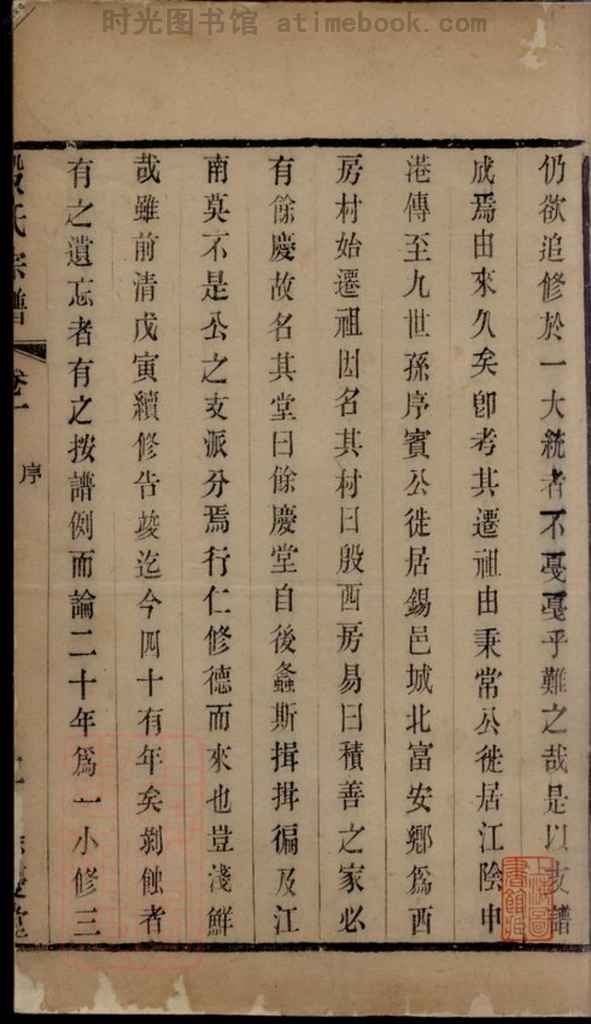 时光图书馆 atimebook.com
仍欲追修於一大統者不戞戞乎難之哉是以支譜
成焉由來久矣卽考其遷祖由秉常公徙居江陰申
港傳至九世孫序賓公徙居錫邑城北富安鄉爲西
房村始遷祖因名其村曰殷西房易曰積善之家必
有餘慶故名其堂曰餘慶堂自後螽斯揖揖徧及江
南莫不是公之支派分焉行仁修德而來也豈淺鮮
哉雖前清戊寅續修告竣迄今四十有年矣剝蝕者
有之遺忘者有之按譜例而論二十年爲一小修三
殷氏宗譜 卷一 序